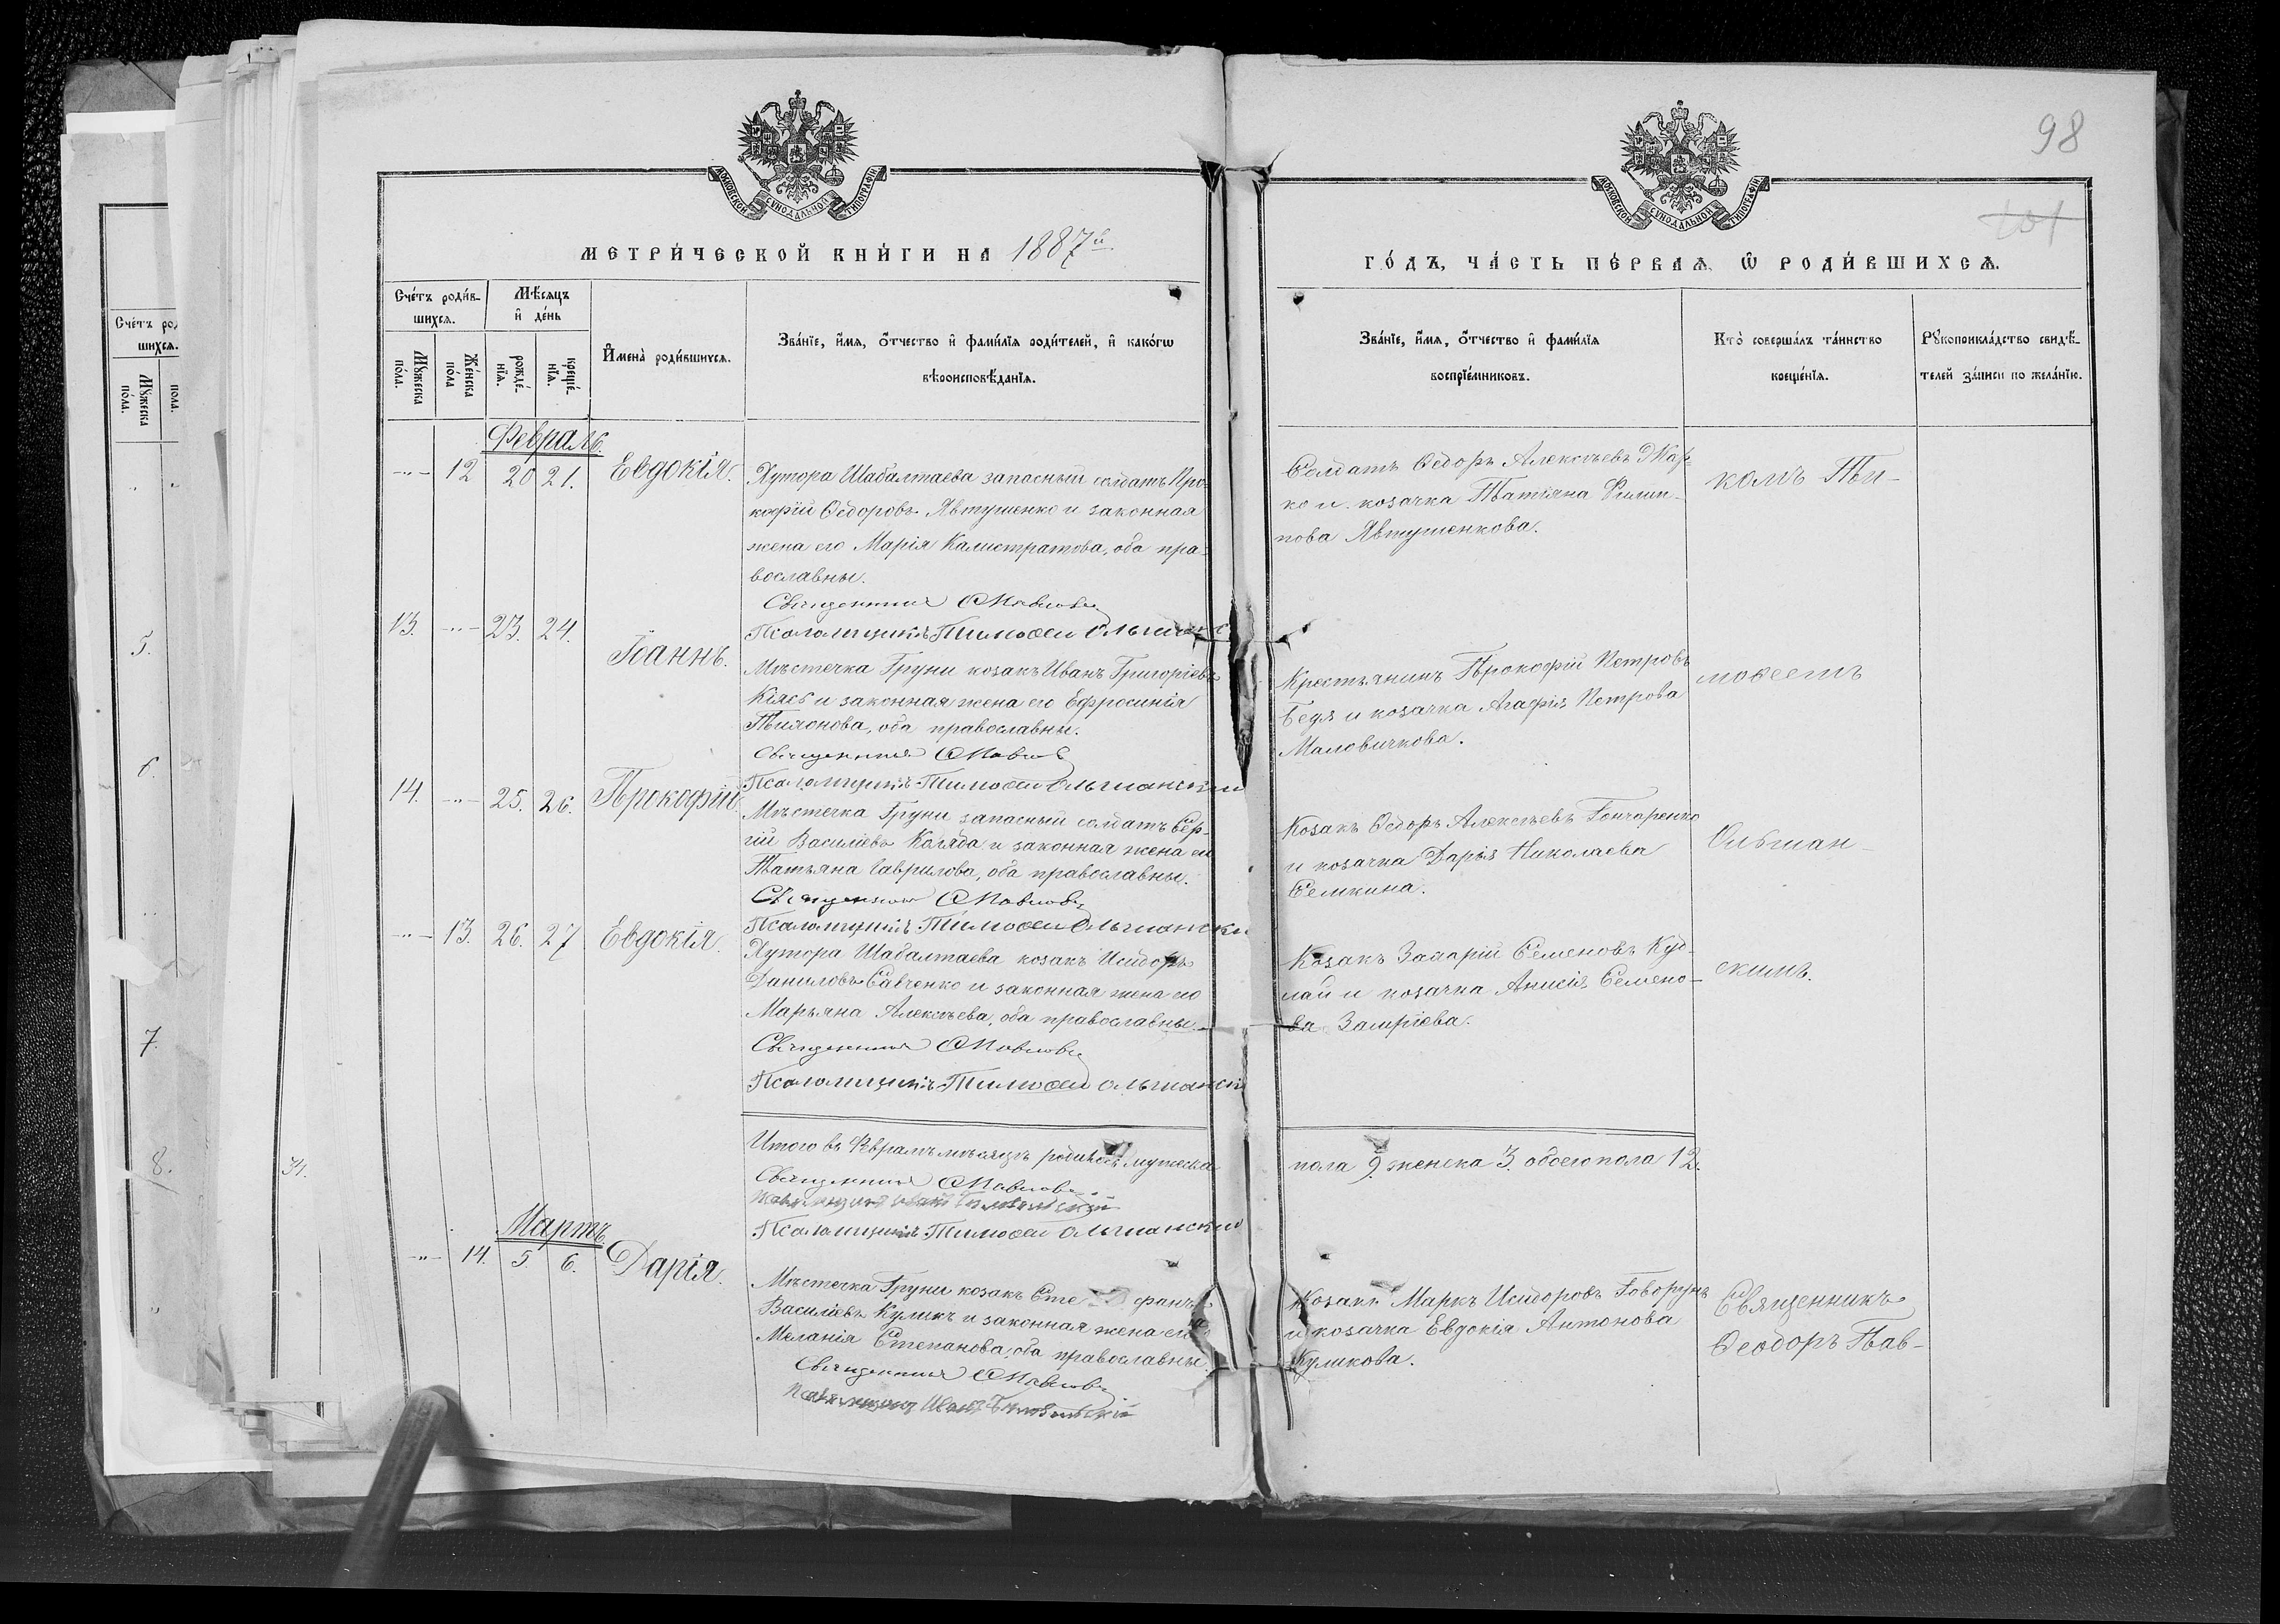 98
МОСКОВСКОЙ СУНОДАЛЬНОЙ ТИПОГРАФІИ
МОСКОВСКОЙ СУНОДАЛЬНОЙ ТИПОГРАФІИ
101
МЕТРИ́ЧЕСКОЙ КНИ́ГИ НА 1887й
ГО́ДЪ, ЧА́СТЬ ПЕ́РВАЯ, Ѡ РОДИ́ВШИХСЯ.
Сче́тъ роди́в-
шихся.
Мѣ́сяцъ
и҆ де́нь
Мꙋ́жеска
по́ла.
Же́нска
по́ла
рожде́-
нїя.
креще́-
нїя.
И҆мена̀ роди́вшихся.
Зва́нїе, и҆́мя, ѻ҆́тчество и҆ фами́лїя роди́телей, и҆ како́гѡ
вѣроисповѣ́данїя.
Зва́нїе, и҆́мя, ѻ҆́тчество и҆ фами́лїя
воспрїе́мниковъ.
Кто̀ соверша́лъ та́инство
креще́нїя.
Рꙋкоприкла́дство свидѣ́-
телей за́писи по жела́нїю.
Февраль.
-„- 12 20 21. Евдокія.
Хутора Шабалтаева запасный солдатъ Про-
кофій Ѳедоровъ Явтушенко и законная
жена его Марія Калистратова, оба пра-
вославны.
Священникъ Ѳ Павловъ
Псаломщикъ Тимоѳей Ольшанс
Солдатъ Ѳедоръ Алексѣевъ Жар-
ко и козачка Татіяна Филип-
пова Явтушенкова.
комъ Ти-
13. -„- 23. 24. Іоаннъ.
Мѣстечка Груни козакъ Иванъ Григоріевъ
Кіяєб и законная жена его Ефросинія
Тихонова, оба православны.
Священникъ Ѳ Павловъ
Псаломщикъ Тимоѳей Ольшанскій
Крестьянинъ Прокофій Петровъ
Бедя и козачка Агафія Петрова
Маловичкова.
моѳеемъ
14. -„- 25. 26. Прокофій.
Мѣстечка Груни запасный солдатъ Сер-
гій Василіевъ Коляда и законная жена его
Татьяна Гаврилова, оба православны.
Священникъ Ѳ Павловъ
Псаломщикъ Тимоѳей Ольшански
Козакъ Ѳедоръ Алексѣевъ Гончаренко
и козачка Дарья Николаева
Семкина.
Ольшан-
-„- 13. 26. 27 Евдокія.
Хутора Шабалтаева козакъ Исидоръ
Даниловъ Савченко и законная жена его
Марьяна Алексѣева, оба православны.
Священникъ Ѳ Павловъ
Псаломщикъ Тимоѳей Ольшанск
Козакъ Захарій Семеновъ Куд-
лай и козачка Анисія Семено-
ва
скимъ.
Итого въ Февралѣ мѣсяцѣ родилось мужеска
пола 9. женска 3. обоего пола 12.
Священникъ Ѳ Павловъ
Псаломщикъ Тимоѳей Ольшанскій
Мартъ.
-„- 14. 5 6. Дарія.
Мѣстечка Груни козакъ Сте фанъ
Василіевъ Куликъ и законная жена его
Меланія Степанова, оба православны.
Священникъ Ѳ Павловъ
Козакъ Маркъ Исидоровъ Говорунъ
и козачка Евдокія Антонова
Куликова.
Священникъ
Ѳеодоръ Пав-
Сче́тъ ро
шихся.
Мꙋ́жеска
по́ла.
пола.
5.
6.
7.
8.
31.